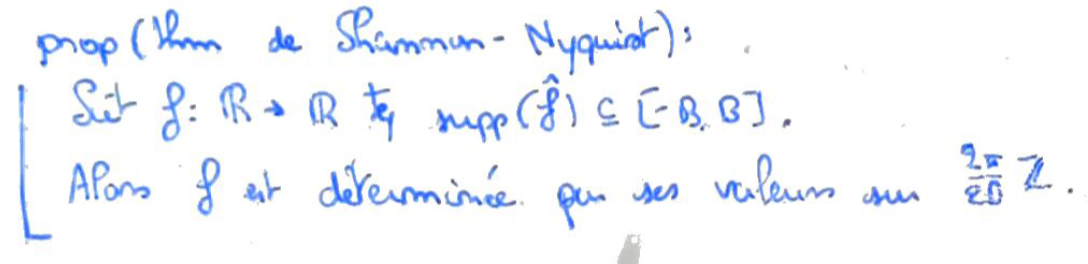 prop (thm de Shannon-Nyquist):
Soit f: ℝ → ℝ tq supp(f̂) ⊆ [-B, B].
Alors f est déterminée par ses valeurs sur 2π/2B ℤ.